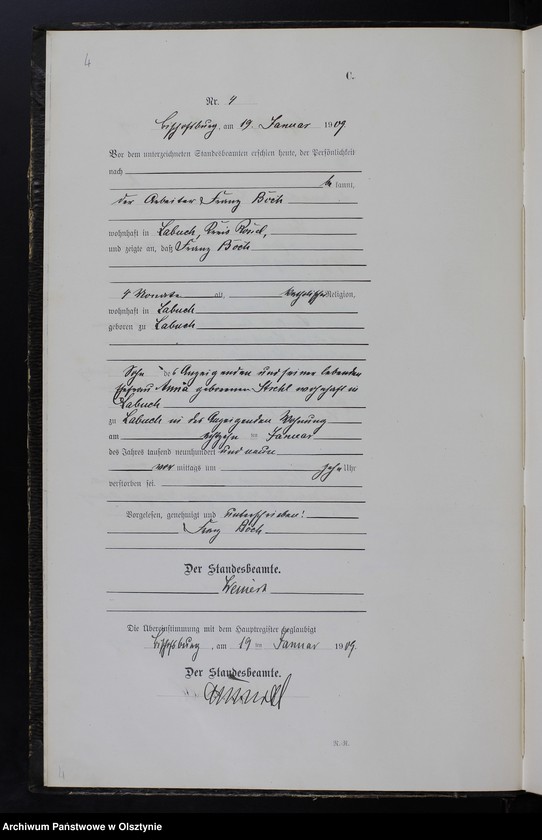 4
C.
Nr. 4
Bischofsburg, am 19. Januar 1909.
Vor dem unterzeichneten Standesbeamten erschien heute, der Persönlichkeit
nach
be kannt,
der Arbeiter Franz Böch
wohnhaft in Labuch, Kreis Rössel,
und zeigte an, daß Franz Böch
4 Monate alt, katholischer Religion,
wohnhaft in Labuch
geboren zu Labuch
Sohn des Anzeigenden und seiner lebenden
Ehefrau Anna geborenen wohnhaft in
Labuch
zu Labuch in des Anzeigenden Wohnung
am achtzehn ten Januar
des Jahres tausend neunhundert und neun
vor mittags um zehn Uhr
verstorben sei.
Vorgelesen, genehmigt und unterschrieben:
Franz Böch
Der Standesbeamte.
Die Übereinstimmung mit dem Hauptregister beglaubigt
Bischofsburg, am 19 ten Januar 1909.
Der Standesbeamte.
N. H.
4
Archiwum Państwowe w Olsztynie